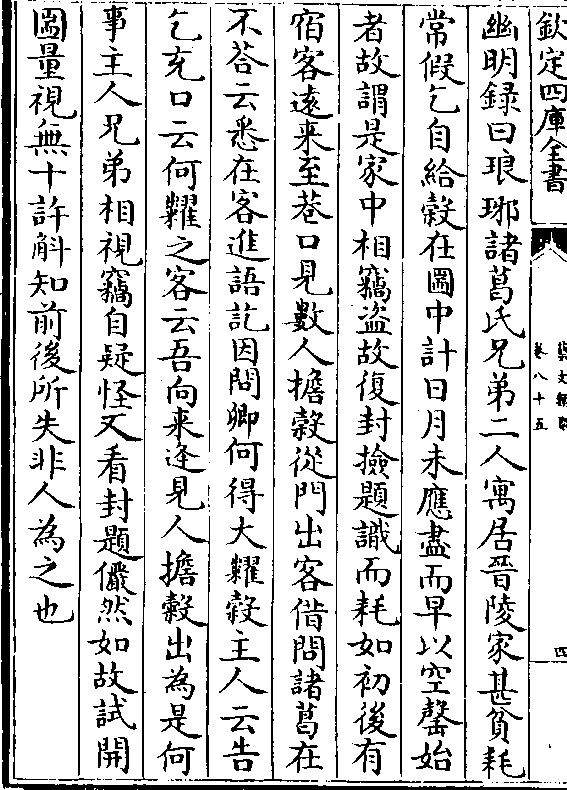 欽定四庫全書
藝文類聚
卷八十五
四
幽明録曰琅琊諸葛氏兄弟二人寓居晉陵家甚貧耗
常假乞自給榖在圌中計日月未應盡而早以空罄始
者故謂是家中相竊盗故復封撿題識而耗如初後有
宿客遠来至巷口見數人擔榖從門出客借問諸葛在
不荅云悉在客進語訖因問卿何得大糶榖主人云告
乞充口云何糶之客云吾向来逢見人擔榖出為是何
事主人兄弟相視竊自疑怪又看封題儼然如故試開
圌量視無十許斛知前後所失非人為之也